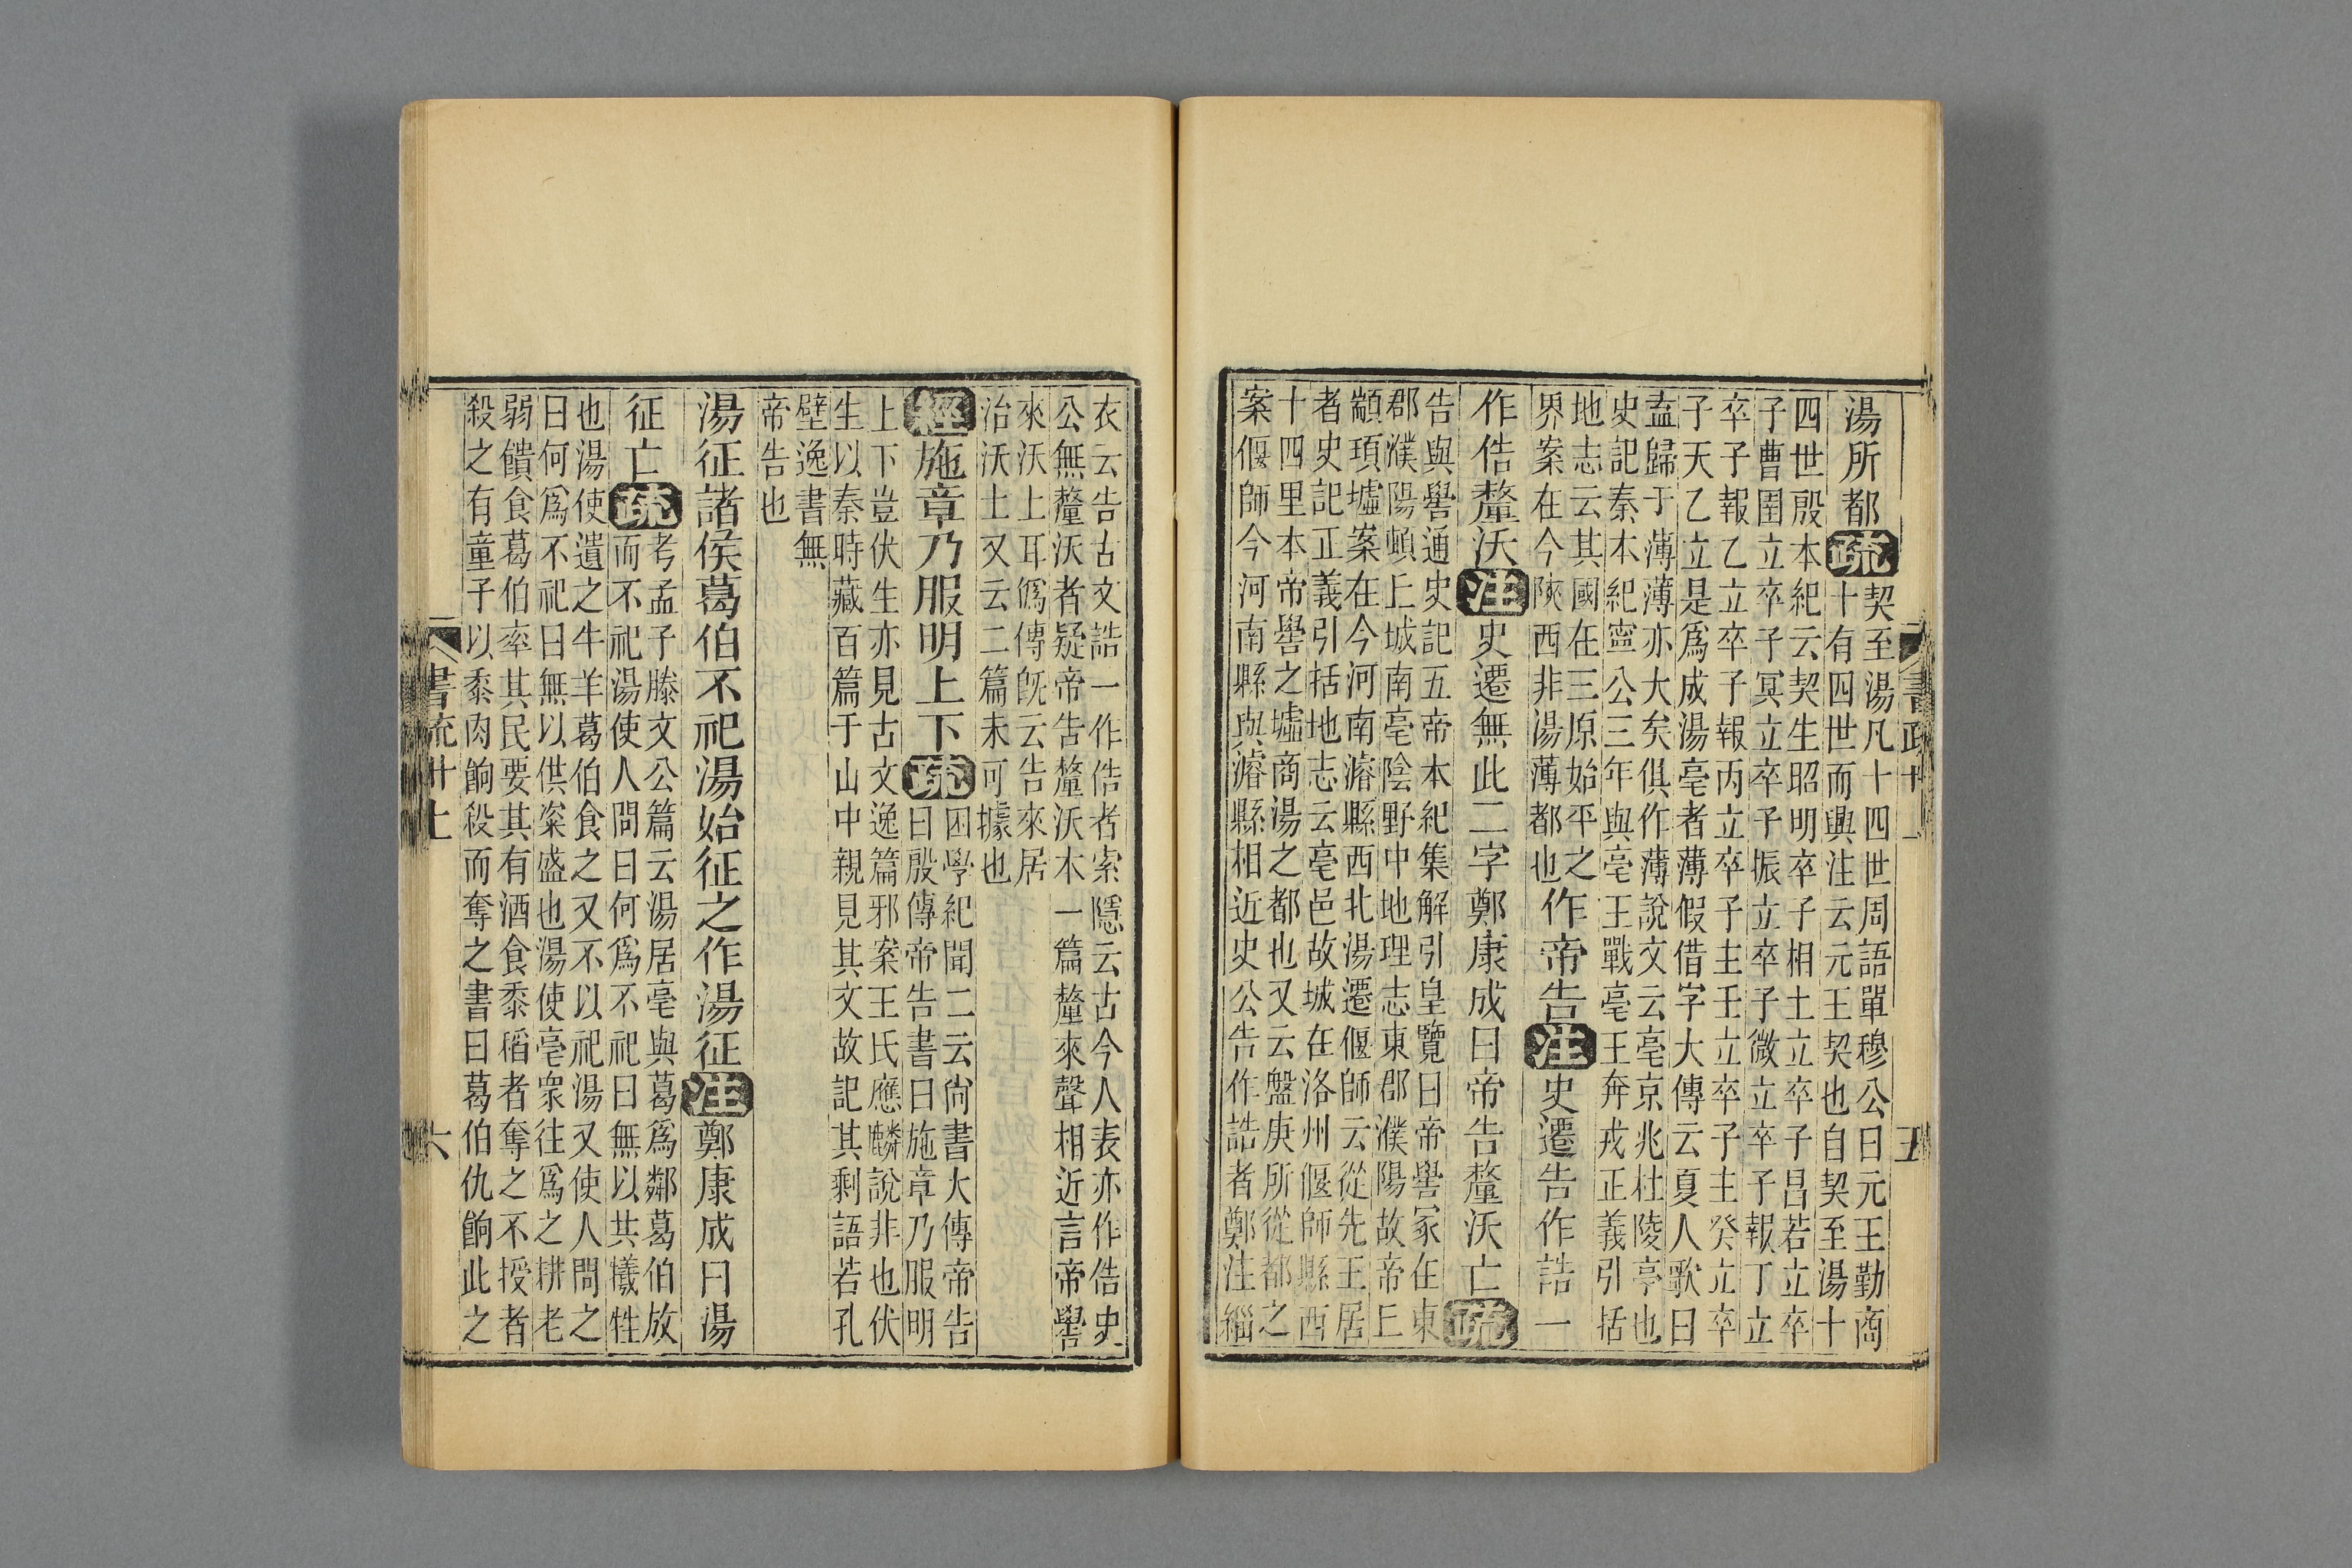 湯所都疏契至湯凡十四世周語單穆公曰元王勤商
十有四世而興注云元王契也自契至湯十
四世殷本紀云契生昭明卒子相土立卒子昌若立卒
子曹圉立卒子冥立卒子振立卒子微立卒子報丁立
卒子報乙立卒子報丙立卒子主壬立卒子主癸立卒
子天乙立是爲成湯亳者薄假借字大傳云夏人歌曰
盍歸于薄薄亦大矣俱作薄說文云亳京兆杜陵亭也
史記秦本紀寧公三年與亳王戰亳王奔戎正義引括
地志云其國在三原始平之
界案在今陝西非湯薄都也作帝告注史遷告作誥一
作俈釐沃注史遷無此二字鄭康成曰帝告釐沃亡疏
告與嚳通史記五帝本紀集解引皇覽曰帝嚳冢在東
郡濮陽頓丄城南亳陰野中地理志東郡濮陽故帝丄
顓頊墟案在今河南濬縣西北湯遷偃師云從先王居
者史記正義引括地志云亳邑故城在洛州偃師縣西
十四里本帝嚳之墟商湯之都也又云盤庚所從都之
案偃師今河南縣與濬縣相近史公告作誥者鄭注緇
五
衣云告古文誥一作俈者索隱云古今人表亦作俈史
公無釐沃者疑帝告釐沃本一篇釐來聲相近言帝嚳
來沃上耳僞傳旣云告來居
治沃土又云二篇未可據也
經施章乃服明上下疏困學紀聞二云尙書大傳帝告
曰殷傳帝告書曰施章乃服明
上下豈伏生亦見古文逸篇邪案王氏應麟說非也伏
生以秦時藏百篇于山中親見其文故記其剩語若孔
壁逸書無
帝告也
湯征諸侯葛伯不祀湯始征之作湯征注鄭康成曰湯
征亡疏考孟子滕文公篇云湯居亳與葛爲鄰葛伯放
而不祀湯使人問曰何爲不祀曰無以共犧牲
也湯使遺之牛羊葛伯食之又不以祀湯又使人問之
曰何爲不祀曰無以供粢盛也湯使亳衆往爲之耕老
弱饋食葛伯率其民要其有酒食黍稻者奪之不授者
殺之有童子以黍肉餉殺而奪之書曰葛伯仇餉此之
六